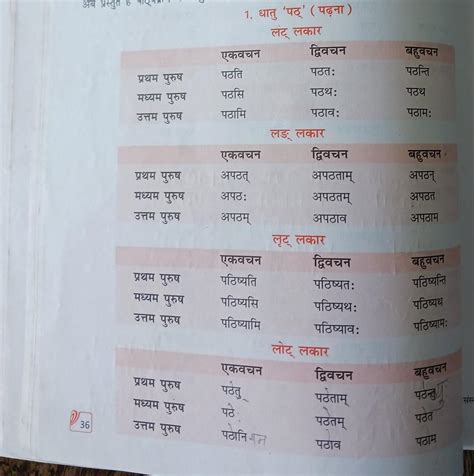 प्रस्तुत
1. धातु 'पठ्' ( पढ़ना )
लट् लकार
एकवचन द्विवचन बहुवचन
प्रथम पुरुष पठति पठत: पठन्ति
मध्यम पुरुष पठसि पठथ: पठथ
उत्तम पुरुष पठामि पठाव: पठाम:
लङ् लकार
एकवचन द्विवचन बहुवचन
प्रथम पुरुष अपठत् अपठताम् अपठन्
मध्यम पुरुष अपठ: अपठतम् अपठत
उत्तम पुरुष अपठम् अपठाव अपठाम
लृट् लकार
एकवचन द्विवचन बहुवचन
प्रथम पुरुष पठिष्यति पठिष्यत: पठिष्यन्ति
मध्यम पुरुष पठिष्यसि पठिष्यथ: पठिष्यथ
उत्तम पुरुष पठिष्यामि पठिष्याव: पठिष्याम:
लोट् लकार
एकवचन द्विवचन बहुवचन
प्रथम पुरुष पठेतु पठेताम् पठेन्तु
मध्यम पुरुष पठे पठेतम् पठेत
उत्तम पुरुष पठानि पठाव पठाम
36